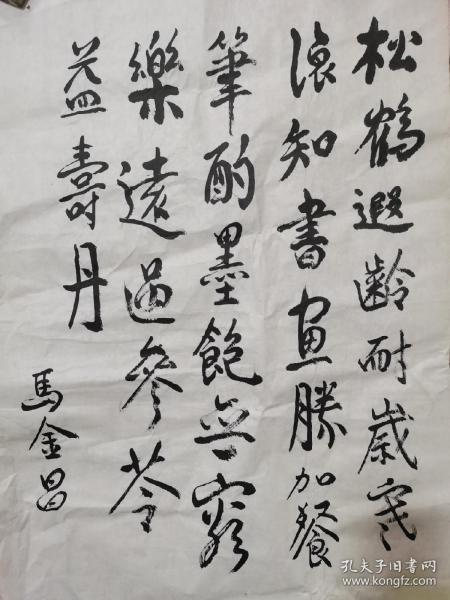 松鶴遐齡耐歲寒
深知書畫勝加餐
筆酣墨飽無窮
樂遠過參苓
益壽丹
馬金昌
孔夫子旧书网
www.kongfz.com